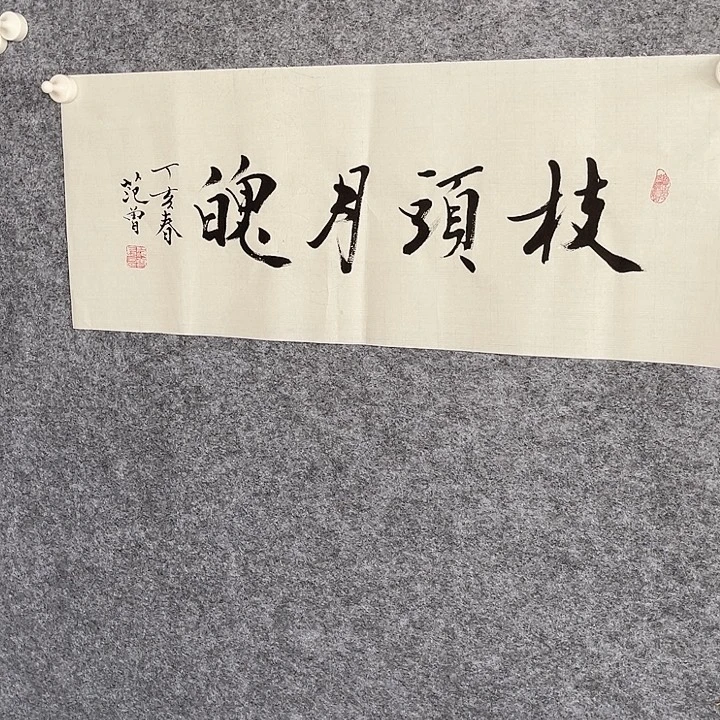 枝頭月魄
丁亥春
范曾